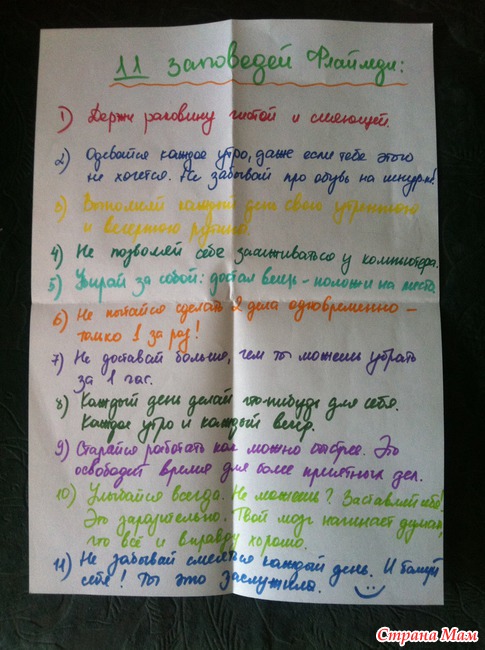 11 заповедей Флайледи:
1) Держи раковину чистой и сияющей.
2) Одевайся каждое утро, даже если тебе этого
не хочется. Не забывай про обувь на шнурках!
3) Выполняй каждый день свою утреннюю
и вечернюю рутину.
4) Не позволяй себе засиживаться у компьютера.
5) Убирай за собой: достал вещь - положи на место.
6) Не пытайся сделать 2 дела одновременно -
только 1 за раз!
7) Не доставай больше, чем ты можешь убрать
за 1 час.
8) Каждый день делай что-нибудь для себя.
Каждое утро и каждый вечер.
9) Старайся работать как можно быстрее. Это
освободит время для более приятных дел.
10) Улыбайся всегда. Не можешь? Заставляй себя!
Это заразительно. Твой мозг начинает думать,
что всё и вправду хорошо.
11) Не забывай смеяться каждый день. И балуй
себя! Ты это заслужила.
Страна Мам